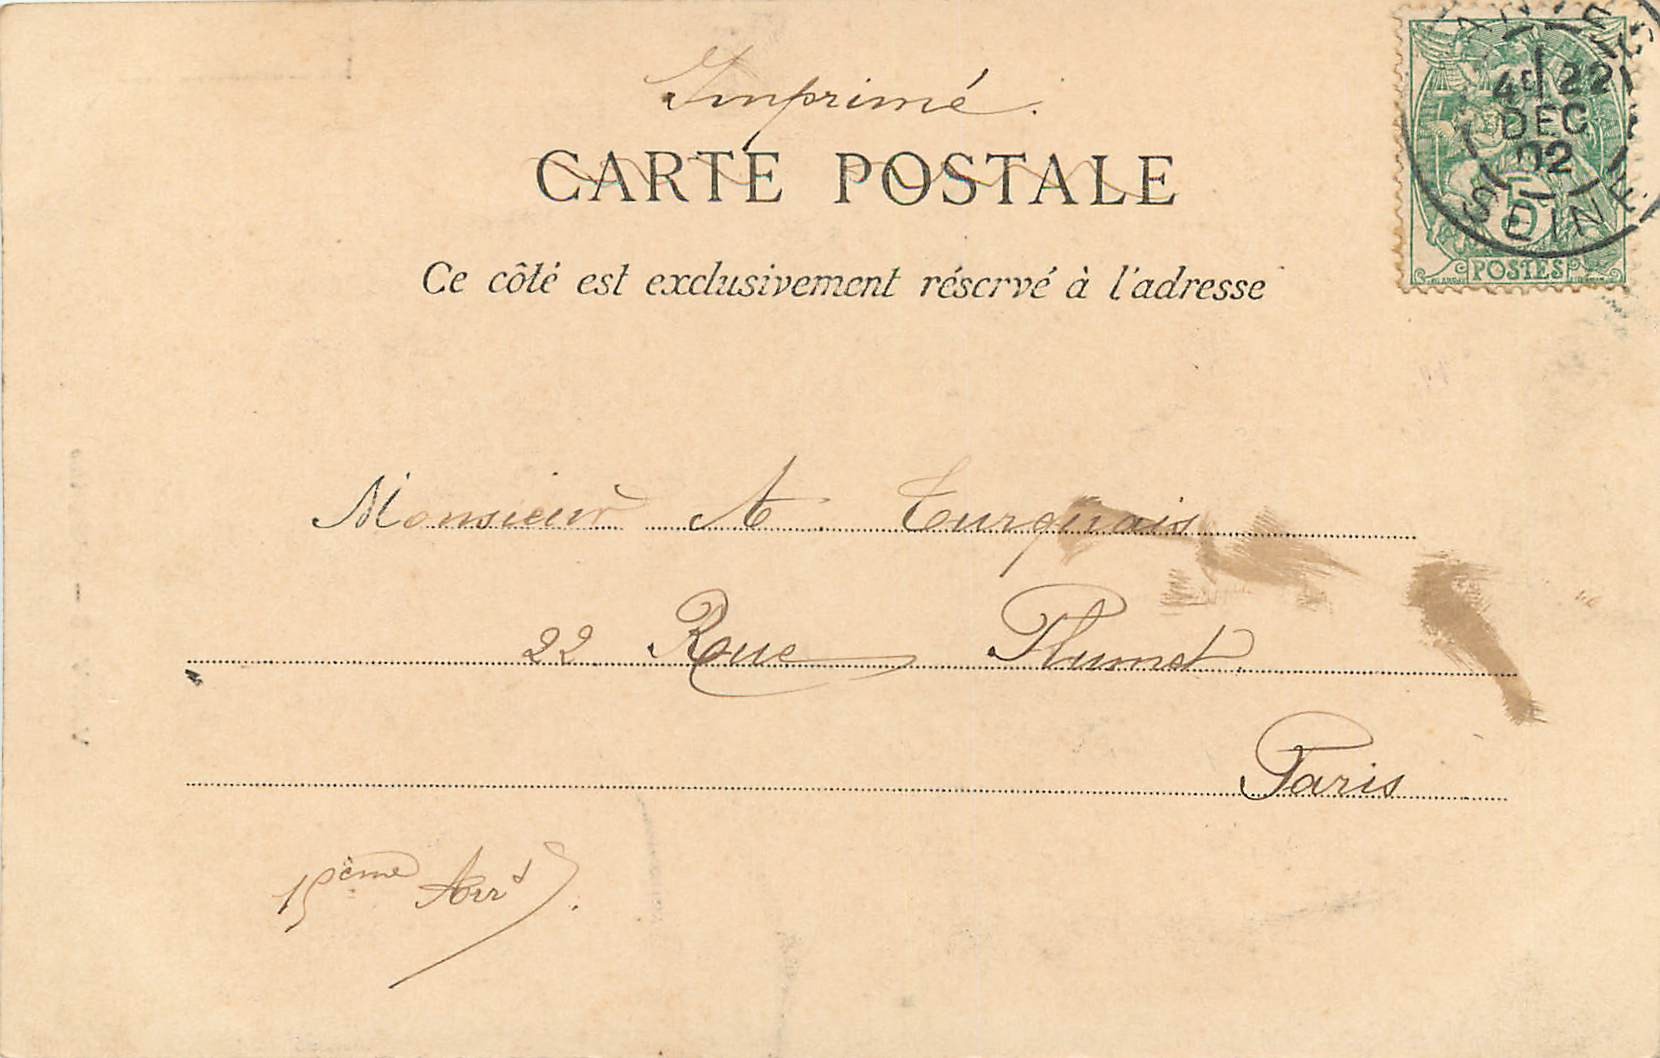 Imprimé.
CARTE POSTALE
Ce côté est exclusivement réservé à l'adresse
4E 22
DEC
02
SEINE
5
POSTES
Monsieur A. Turquais
22 Rue Plumet
Paris
15ème Arrd.